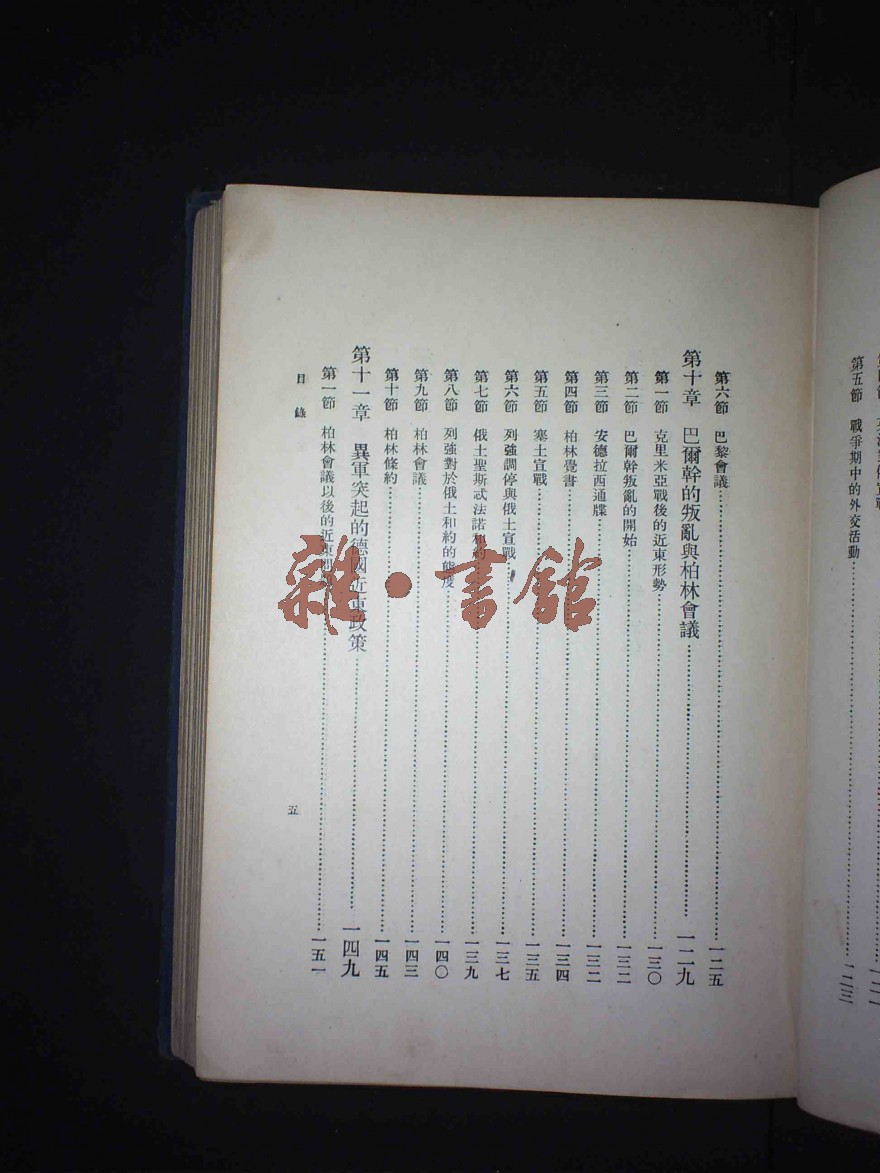 第五節 戰爭期中的外交活動 一二三
第六節 巴黎會議 一二五
第十章 巴爾幹的叛亂與柏林會議 一二九
第一節 克里米亞戰後的近東形勢 一三〇
第二節 巴爾幹叛亂的開始 一三二
第三節 安德拉西通牒 一三二
第四節 柏林覺書 一三四
第五節 塞土宣戰 一三五
第六節 列強調停與俄土宣戰 一三七
第七節 俄土聖斯忒法諾和約 一三九
第八節 列強對於俄土和約的態度 一四〇
第九節 柏林會議 一四三
第十節 柏林條約 一四五
第十一章 異軍突起的德國近東政策 一四九
第一節 柏林會議以後的近東 一五一
目錄 五
雜·書館